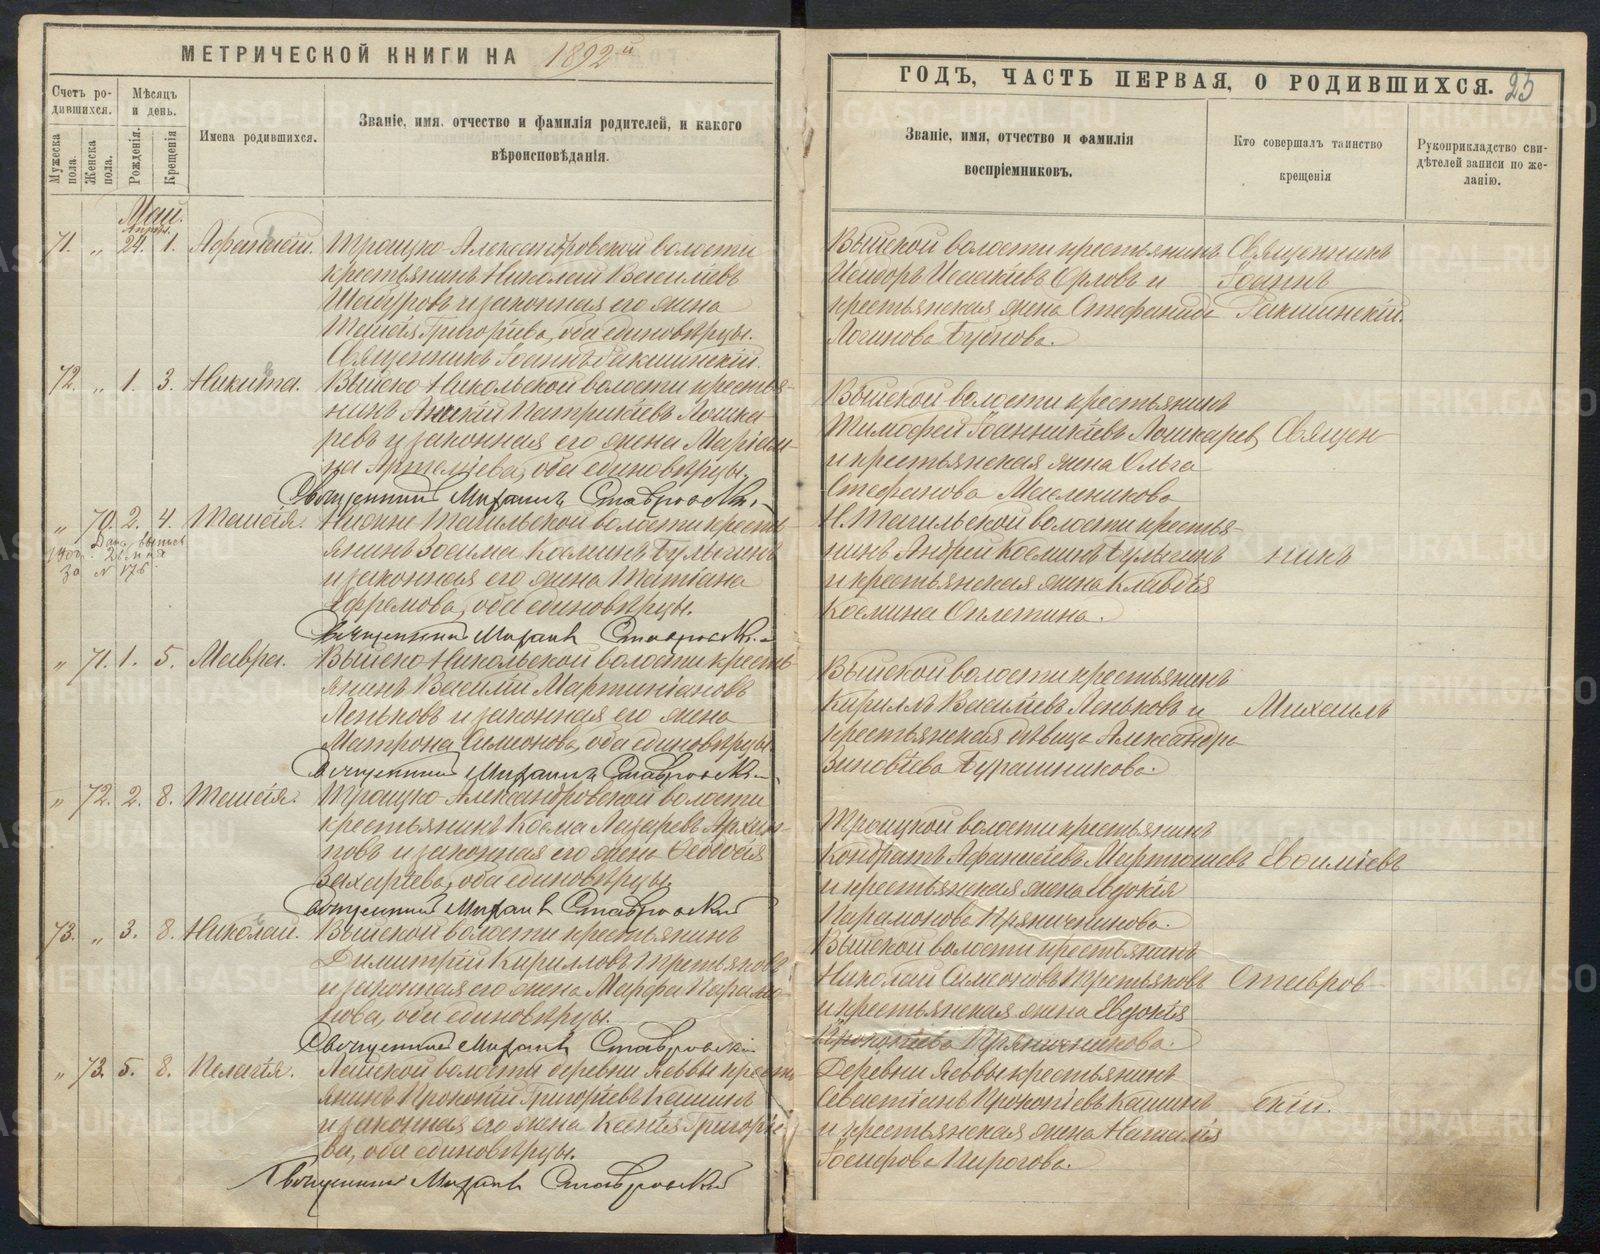 МЕТРИЧЕСКОЙ КНИГИ НА 1892й
Счетъ ро-
дившихся.
Мѣсяцъ
и день.
Мужеска
пола.
Женска
пола.
Рожденія.
Крещенія
Имена родившихся.
Званіе, имя, отчество и фамилія родителей, и какого
вѣроисповѣданія.
Май.
Апрѣл.
71. „ 24. 1. Афанасій. Троицко-Александровской волости
крестьянинъ Николай Васильевъ
и законная его жена
Таисія Григорьева, оба единовѣрцы.
Священникъ Іоаннъ
72. „ 1. 3. Никита. Выйско-Никольской волости крестья-
нинъ Патрикіевъ Лошка-
ревъ и законная его жена Маріам-
на оба единовѣрцы.
Священникъ Михаилъ Ставровскій
„ 70. 2. 4. Таисія. Нижне-Тагильской волости кресть-
янинъ Зосима Козминъ Булыгинъ
и законная его жена Татіана
Ефремова, оба единовѣрцы.
Священникъ Михаилъ Ставровскій
Дана выпись
21 мая
за № 176
„ 71. 1. 5. Мавра. Выйско-Никольской волости кресть-
янинъ Василій Мартиніановъ
Леньковъ и законная его жена
Матрона Симеонова, оба единовѣрцы.
Священникъ Михаилъ Ставровскій
„ 72. 2. 8. Таисія. Троицко-Александровской волости
крестьянинъ Козма Лазаревъ Архи-
повъ и законная его жена Ѳеодосія
Захаріева, оба единовѣрцы.
Священникъ Михаилъ Ставровскій
73. „ 3. 8. Николай. Выйской волости крестьянинъ
Димитрій Кирилловъ Третьяковъ
и законная его жена Марфа Парамо-
нова, оба единовѣрцы.
Священникъ Михаилъ Ставровскій
„ 73. 5. 8. Пелагія. Лайской волости деревни Яввы кресть-
янинъ Прокопій Григорьевъ Кашинъ
и законная его жена Ксенія Григорье-
ва, оба единовѣрцы.
Священникъ Михаилъ Ставровскій
ГОДЪ, ЧАСТЬ ПЕРВАЯ, О РОДИВШИХСЯ. 25
Званіе, имя, отчество и фамилія
воспріемниковъ.
Кто совершалъ таинство
крещенія
Рукоприкладство сви-
дѣтелей записи по же-
ланію.
Выйской волости крестьянинъ Священникъ
Исидоръ Исаакіевъ Орловъ и Іоаннъ
крестьянская жена Стефанида
Логинова Бубнова.
Выйской волости крестьянинъ
Тимофей Іоанникіевъ Лошкаревъ Священ-
и крестьянская жена Ольга
Стефанова Мельникова
Н.Тагильской волости крестья-
нинъ Андрей Козминъ Булыгинъ никъ
и крестьянская жена Клавдія
Козмина Оплетина.
Выйской волости крестьянинъ
Кириллъ Васильевъ Леньковъ и Михаилъ
крестьянская дѣвица Александра
Зиновіева Бурашникова.
Троицкой волости крестьянинъ
Кондратъ Афанасіевъ Мартюшевъ Евсиміевъ
и крестьянская жена Евдокія
Парамонова Пряничникова.
Выйской волости крестьянинъ
Николай Симеоновъ Третьяковъ Ставров-
и крестьянская жена Евдокія
Пряничникова.
Деревни Яввы крестьянинъ
Севастіанъ Прокопіевъ Кашинъ скій.
и крестьянская жена Наталія
Іосифова Пирогова.